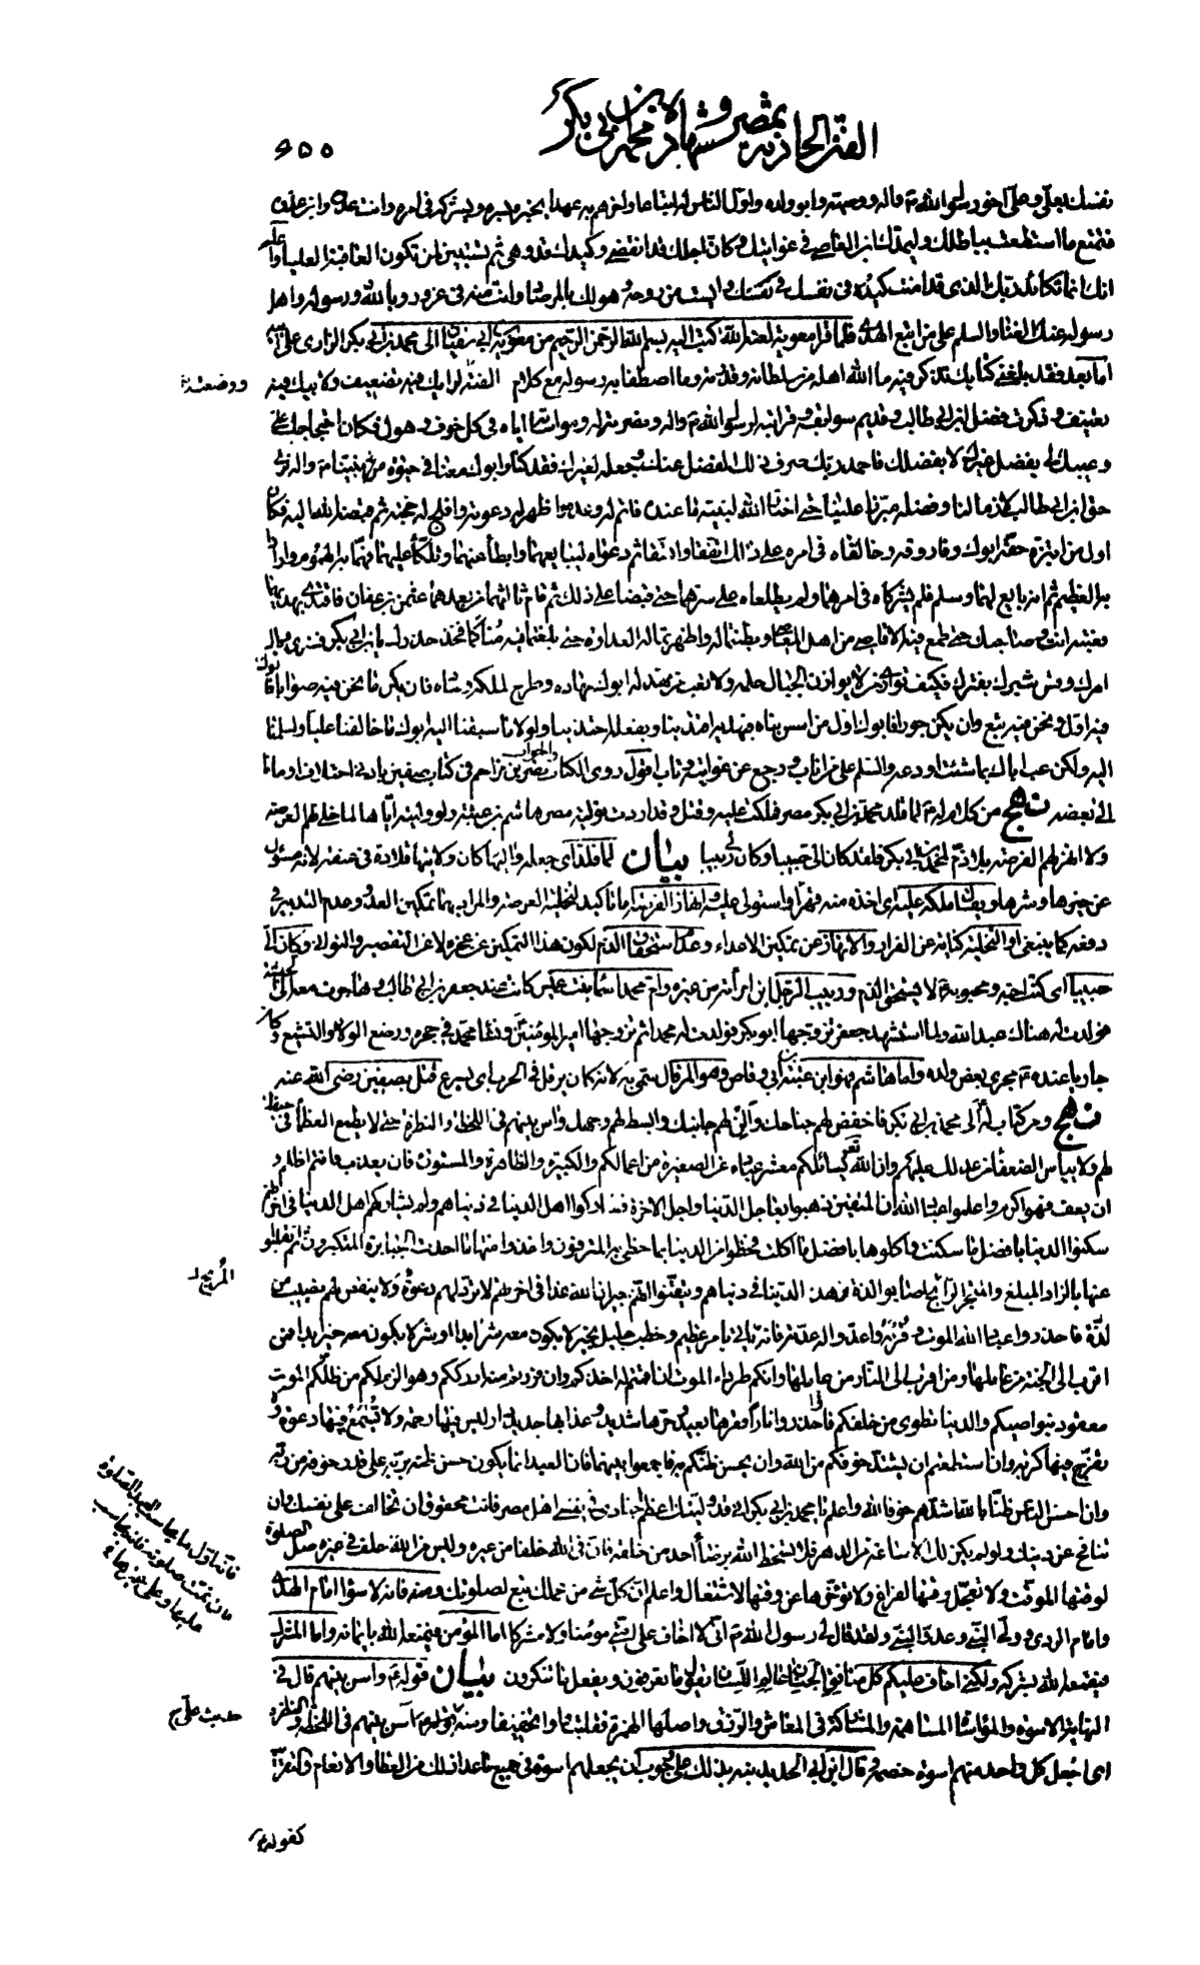 الفتن الحادثة بمصر وشهادة محمد بن أبي بكر
٦٥٥
نفسك بعلي وعلي أخو رسول الله ص وآله ووصيه وأبو ولده وأول الناس له اتباعا وآخرهم به عهدا يخبره بسره ويشركه في أمره وأنت عدوه وابن عدوه
فتمتع ما استطعت بباطلك وليمدك ابن العاصي في غوايتك وكان أجلك قد انقضى وكيدك قد وهى ثم تستبين لمن تكون العاقبة العليا واعلم
انك انما تكائد ربك الذي قد أمنت كيده في نفسك وأيست من روحه وهو لك بالمرصاد وأنت منه في غرور وبالله ورسوله وأهل
رسوله عنك الغناء والسلم على من اتبع الهدى فلما قرأ معوية لعنه الله كتب اليه بسم الله الرحمن الرحيم من معوية بن أبي سفيان الى محمد بن أبي بكر الزاري على أبيه
اما بعد فقد بلغني كتابك تذكر فيه ما الله أهله من سلطانه وقدرته وما اصطفى به رسوله مع كلام الفته لرأيك فيه تضعيف ولابيك فيه
ووضعته
تعنيف وذكرت فضل ابن أبي طالب وقديم سوابقه وقرابته لرسول الله ص وآله ونصرته له ومواساته اياه في كل خوف وهول فكان احتجاجك علي
وعيبك لي بفضل غيرك لا بفضلك فاحمد ربك صرف ذلك الفضل عنك وجعله لغيرك فقد كنا وأبوك معنا في حيوة من نبينا ص وآله نرى
حق ابن أبي طالب لازما لنا وفضله مبرزا علينا حتى اختار الله لنبيه ما عنده فاتم له وعده واظهر له دعوته وافلج له حجته ثم قبضه الله اليه فكان
اول من ابتزه حقه أبوك وفاروقه وخالفاه في امره على ذلك اتفقا واتسقا ثم دعواه ليبايعهما وابطأ عنهما وتلكأ عليهما فهما به الهموم وارادا
به العظيم ثم انه بايع لهما وسلم فلم يشركاه في امرهما ولم يطلعاه على سرهما حتى قبضا على ذلك ثم قام ثالثهما من بعدهما عثمن بن عفان فاقتدى بهديهما
فعبته انت وصاحبك حتى طمع فيه الاقاصي من اهل المعاصي وبطنتما له واظهرتما له العداوة حتى بلغتما فيه مناكما فخذ حذرك يا بن أبي بكر فسترى وبال
امرك وقس شبرك بفترك فكيف توازي من لا يوازن الجبال حلمه ولا تعب من مهد له ابوك مهاده وطرح لملكه وساده فان يكن ما نحن فيه صوابا فابوك
فيه اول ونحن فيه تبع وان يكن جورا فابوك اول من اسس بناه فبهديه اخذنا وبفعله اقتدينا ولولا ما سبقنا اليه ابوك ما خالفنا عليا ولسلمنا
اليه ولكن عب اباك بما شئت او دعه والسلم على من اناب ورجع عن غوايته وتاب اقول روى الكتاب والجواب نصر بن مزاحم في كتاب صفين بادنى اختلاف اومأنا
الى بعضه نهج من كلام له ع لما قلد محمد بن أبي بكر مصر فملكت عليه وقتل وقد اردت تولية مصر هاشم بن عتبة ولو وليته اياها لما خلى لهم العرصة
ولا انهزهم الفرصة بلا ذم لمحمد بن أبي بكر فلقد كان الي حبيبا وكان لي ربيبا بيان لما قلد اي جعله واليها كان ولايتها قلادة في عنقه لانه مسئول
عن خيرها وشرها ويقال ملكه عليه اي اخذه منه قهرا واستولى عليه وانهاز الفرصة اما تأكيد لتخلية العرصة والمراد بهما تمكين العدو وعدم التدبير في
دفعه كما ينبغي او التخلية كناية عن الفرار والانهاز عن تمكين الاعداء وعدم استحقاق الذم لكون هذا التمكين عن عجزه لا عن التقصير والتواني وكان الي
حبيبا اي كنت احبه ومحبوبه ع لا يستحق الذم وربيب الرجل ابن امرأته من غيره وام محمد اسماء بنت عميس كانت عند جعفر بن أبي طالب وهاجرت معه الى الحبشة
فولدت له هناك عبد الله ولما استشهد جعفر تزوجها ابو بكر فولدت له محمدا ثم تزوجها امير المؤمنين ع ونشأ محمد في حجره ورضع الولاء والتشيع وكان
جاريا عنده ع مجرى بعض ولده واما هاشم فهو ابن عتبة بن ابي وقاص وهو المرقال سمي به لانه كان يرقل في الحرب اي يسرع قتل بصفين رضي الله عنه
نهج ومن كتاب له ع الى محمد بن أبي بكر فاخفض لهم جناحك وألن لهم جانبك وابسط لهم وجهك وآس بينهم في اللحظة والنظرة حتى لا يطمع العظماء في حيفك
لهم ولا ييأس الضعفاء من عدلك عليهم وان الله تعالى يسائلكم معشر عباده عن الصغيرة من اعمالكم والكبيرة والظاهرة والمستورة فان يعذب فانتم اظلم و
ان يعف فهو اكرم واعلموا عباد الله ان المتقين ذهبوا بعاجل الدنيا وآجل الاخرة فشاركوا اهل الدنيا في دنياهم ولم يشاركهم اهل الدنيا في آخرتهم
سكنوا الدنيا بافضل ما سكنت واكلوها بافضل ما اكلت فحظوا من الدنيا بما حظي به المترفون واخذوا منها ما اخذت الجبابرة المتكبرون ثم انقلبوا
المُربح
عنها بالزاد المبلغ والمتجر الرابح اصابوا لذة زهد الدنيا في دنياهم وتيقنوا انهم جيران الله غدا في آخرتهم لا ترد لهم دعوة ولا ينقص لهم نصيب من
لذة فاحذروا عباد الله الموت وقربه واعدوا له عدته فانه يأتي بامر عظيم وخطب جليل بخير لا يكون معه شر ابدا او شر لا يكون معه خير ابدا فمن
اقرب الى الجنة من عاملها ومن اقرب الى النار من عاملها وانكم طرداء الموت ان اقمتم له اخذكم وان فررتم منه ادرككم وهو الزم لكم من ظلكم الموت
معقود بنواصيكم والدنيا تطوى من خلفكم فاحذروا نارا قعرها بعيد وحرها شديد وعذابها جديد دار ليس فيها رحمة ولا تسمع فيها دعوة ولا
تفرج فيها كربة وان استطعتم ان يشتد خوفكم من الله وان يحسن ظنكم به فاجمعوا بينهما فان العبد انما يكون حسن ظنه بربه على قدر خوفه من ربه
وان احسن الناس ظنا بالله اشدهم خوفا لله واعلم يا محمد بن أبي بكر اني قد وليتك اعظم اجنادي في نفسي اهل مصر فانت محقوق ان تخالف على نفسك وان
تنافح عن دينك ولو لم يكن لك الا ساعة من الدهر فلا تسخط الله برضى احد من خلقه فان في الله خلفا من غيره وليس من الله خلف في غيره صل الصلوة
لوقتها الموقت ولا تعجل وقتها لفراغ ولا تؤخرها عن وقتها لاشتغال واعلم ان كل شيء من عملك تبع لصلوتك ومنه فانه لا سواء امام الهدى
وامام الردى وولي النبي وعدو النبي ولقد قال لي رسول الله ص اني لا اخاف على امتي مؤمنا ولا مشركا اما المؤمن فيمنعه الله بايمانه واما المشرك
فيقمعه الله بشركه ولكني اخاف عليكم كل منافق الجنان عالم اللسان يقول ما تعرفون ويفعل ما تنكرون بيان قوله ع وآس بينهم قال في
حديث علي ع
النهاية الاسوة والمواساة المساهمة والمشاركة في المعاش والرزق واصلها الهمزة فقلبت واوا تخفيفا ومنه قوله ع آس بينهم في اللحظة والنظرة
اي اجعل كل واحد منهم اسوة خصمه وقال ابن أبي الحديد نبه بذلك على وجوب ان يجعلهم اسوة في جميع ما عدا ذلك من العطاء والانعام والتقريب
كقوله